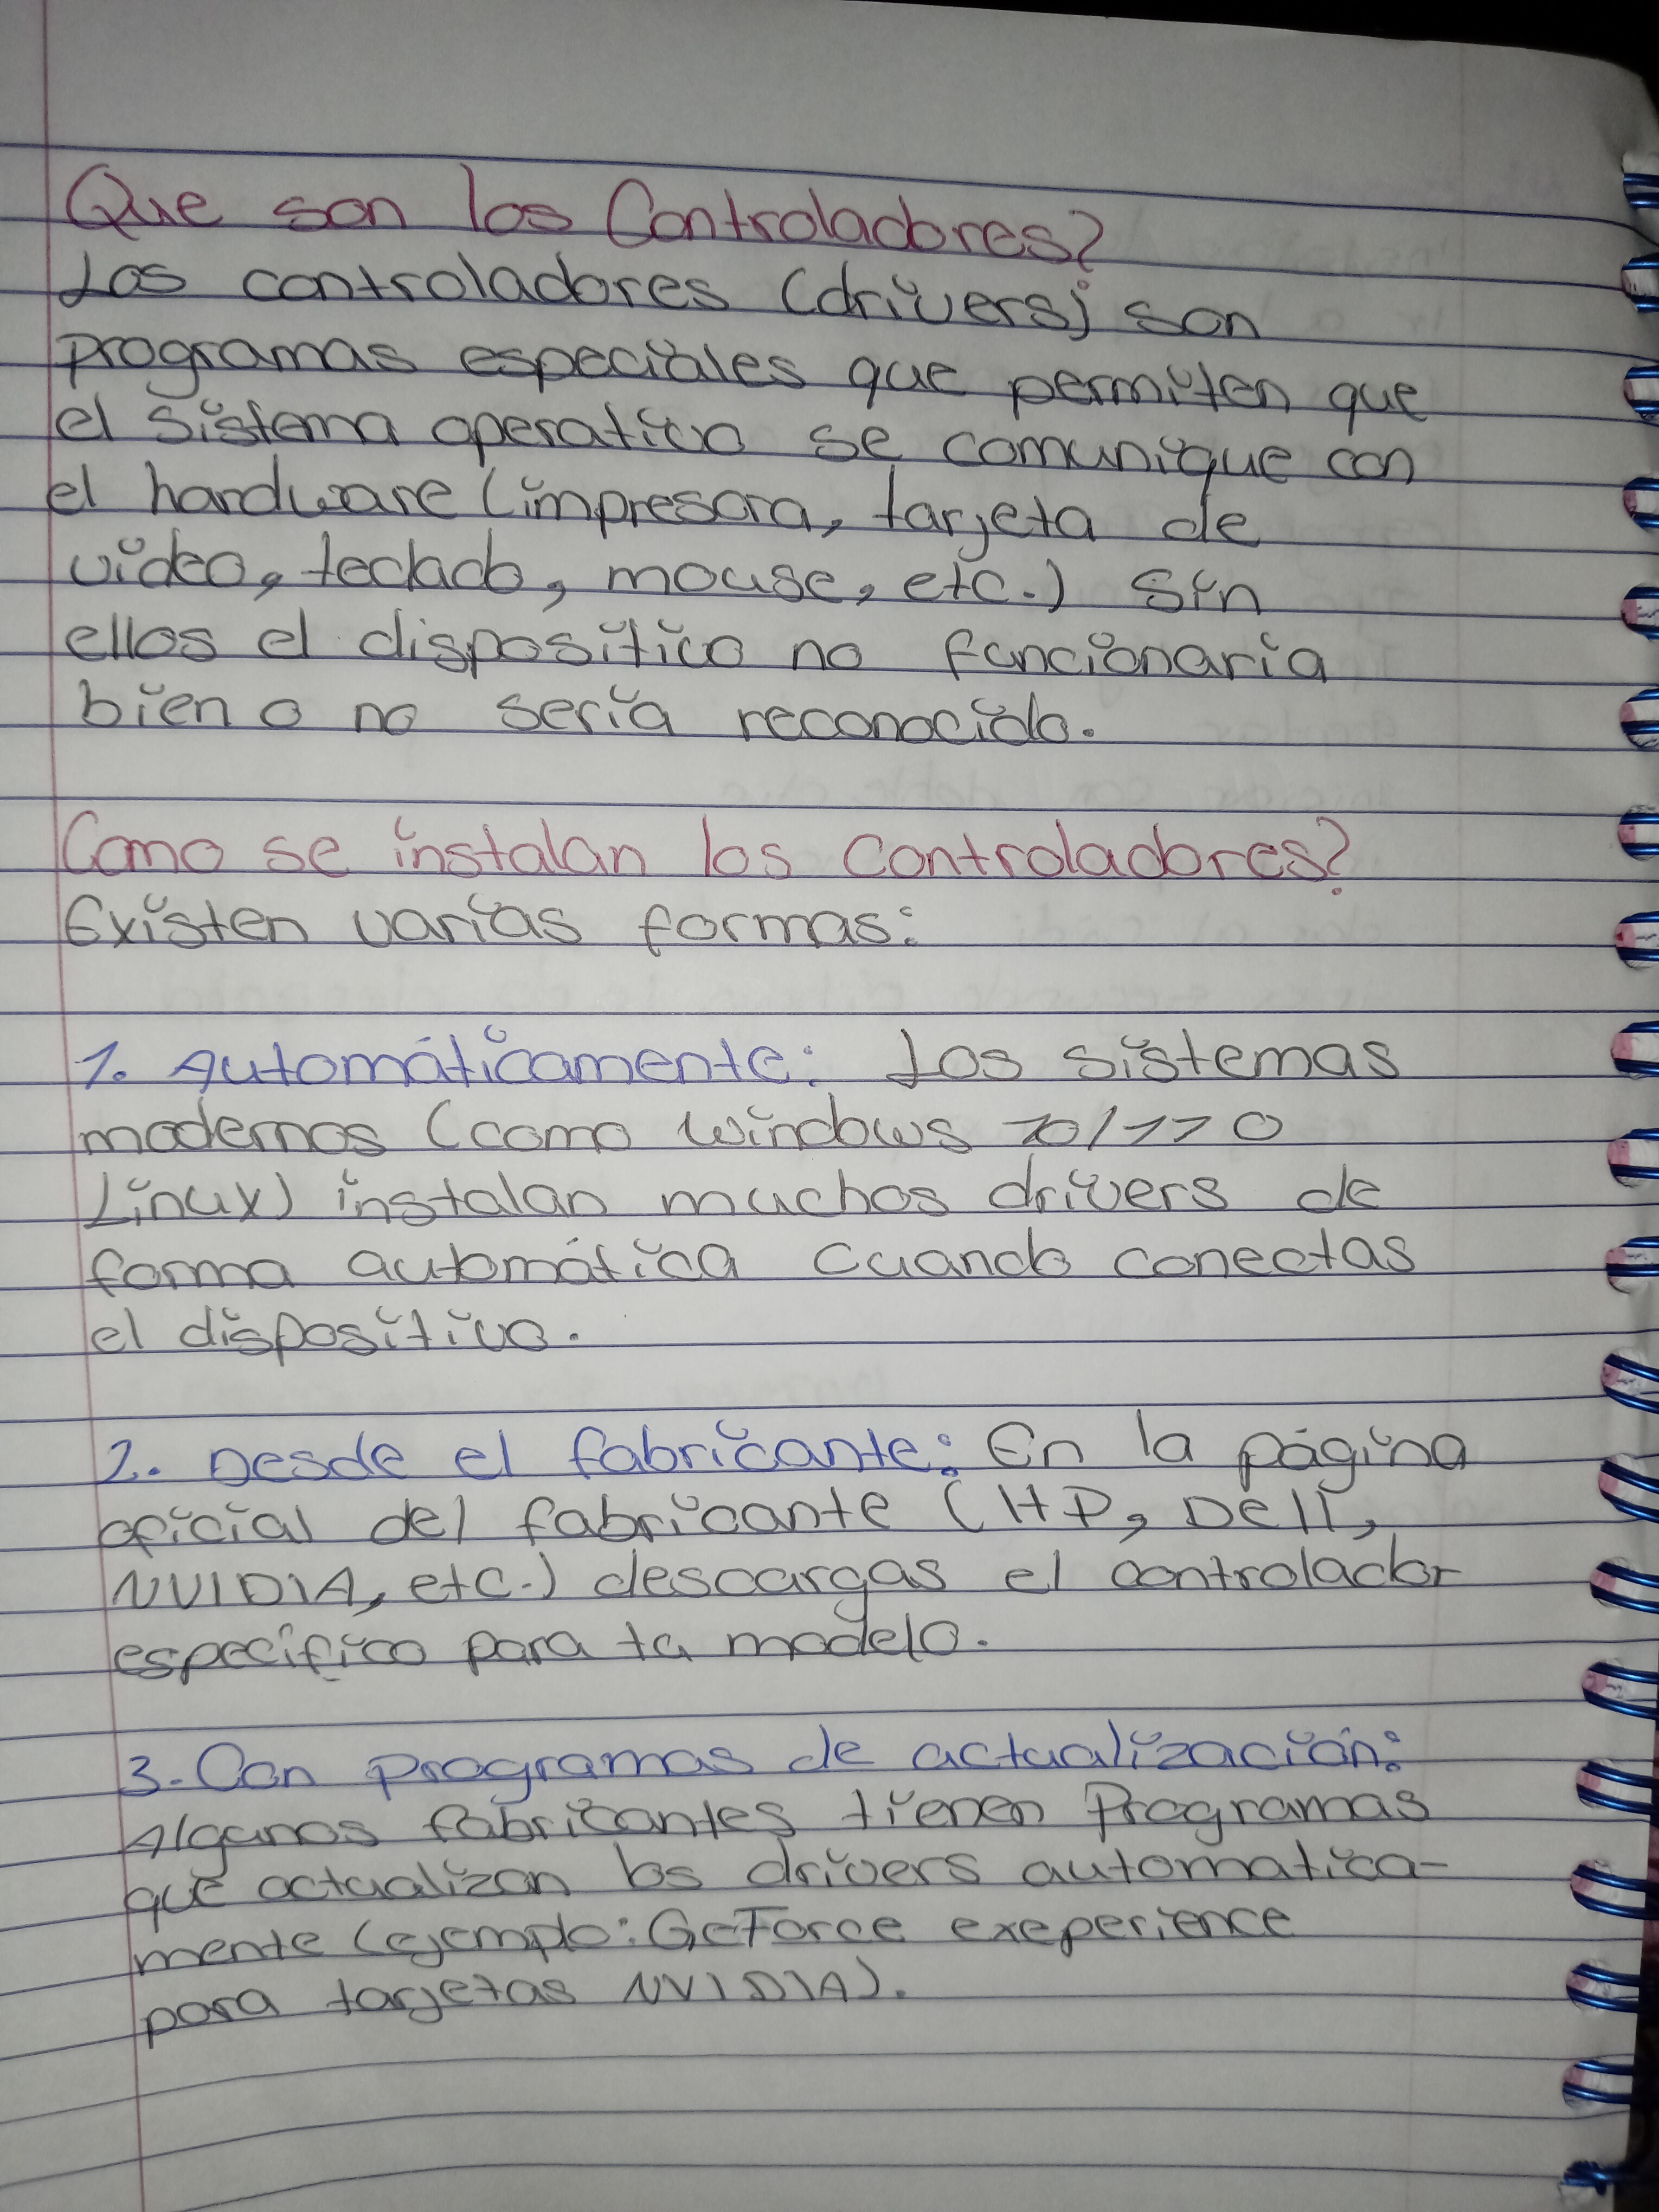 Que son los Controladores?
Los controladores (drivers) son
programas especiales que permiten que
el sistema operativo se comunique con
el hardware (impresora, tarjeta de
video, teclado, mouse, etc.) Sin
ellos el dispositivo no funcionaría
bien o no sería reconocido.
Como se instalan los controladores?
Existen varias formas:
1. Automáticamente: Los sistemas
modernos (como windows 10/11 o
Linux) instalan muchos drivers de
forma automática cuando conectas
el dispositivo.
2. Desde el fabricante: En la página
oficial del fabricante (HP, Dell,
NVIDIA, etc.) descargas el controlador
especifico para tu modelo.
3. Con programas de actualización:
Algunos fabricantes tienen Programas
que actualizan los drivers automatica-
mente (ejemplo: GeForce exeperience
para tarjetas NVIDIA).